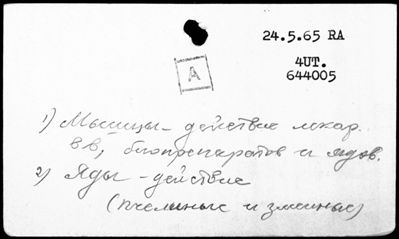 24.5.65 RA
4UT.
644005
A
1) Мышцы - действие лекар.
в-в, биопрепаратов и ядов.
2) Яды - действие
(пчелиные и змеиные)